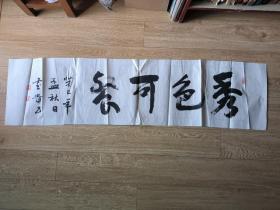 秀色可餐
癸巳年
孟秋日